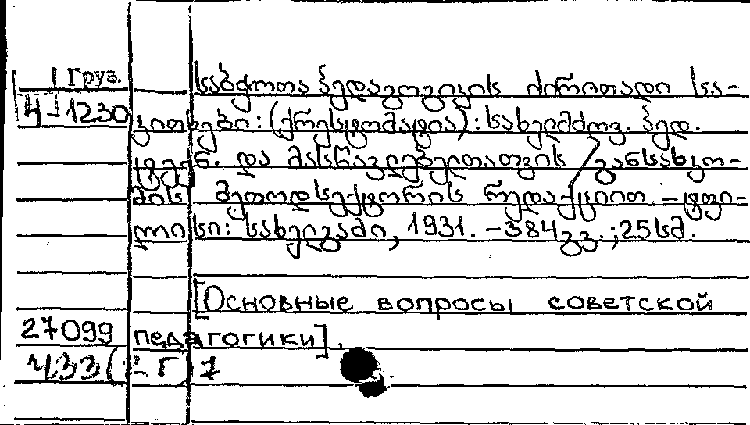 Груз.
Ч-1230
საბჭოთა პედაგოგიკის ძირითადი სა-
კითხები: (ქრესტომატია): სახელმძღვ. პედ.
ტექნ. და მასწავლებელთათვის / განსახკო-
მის მეთოდსექტორის რედაქციით. – ტფი-
ლისი: სახელგამი, 1931. – 384 გვ.; 25 სმ.
[Основные вопросы советской
27099 педагогики].
Ч33(2Г)7